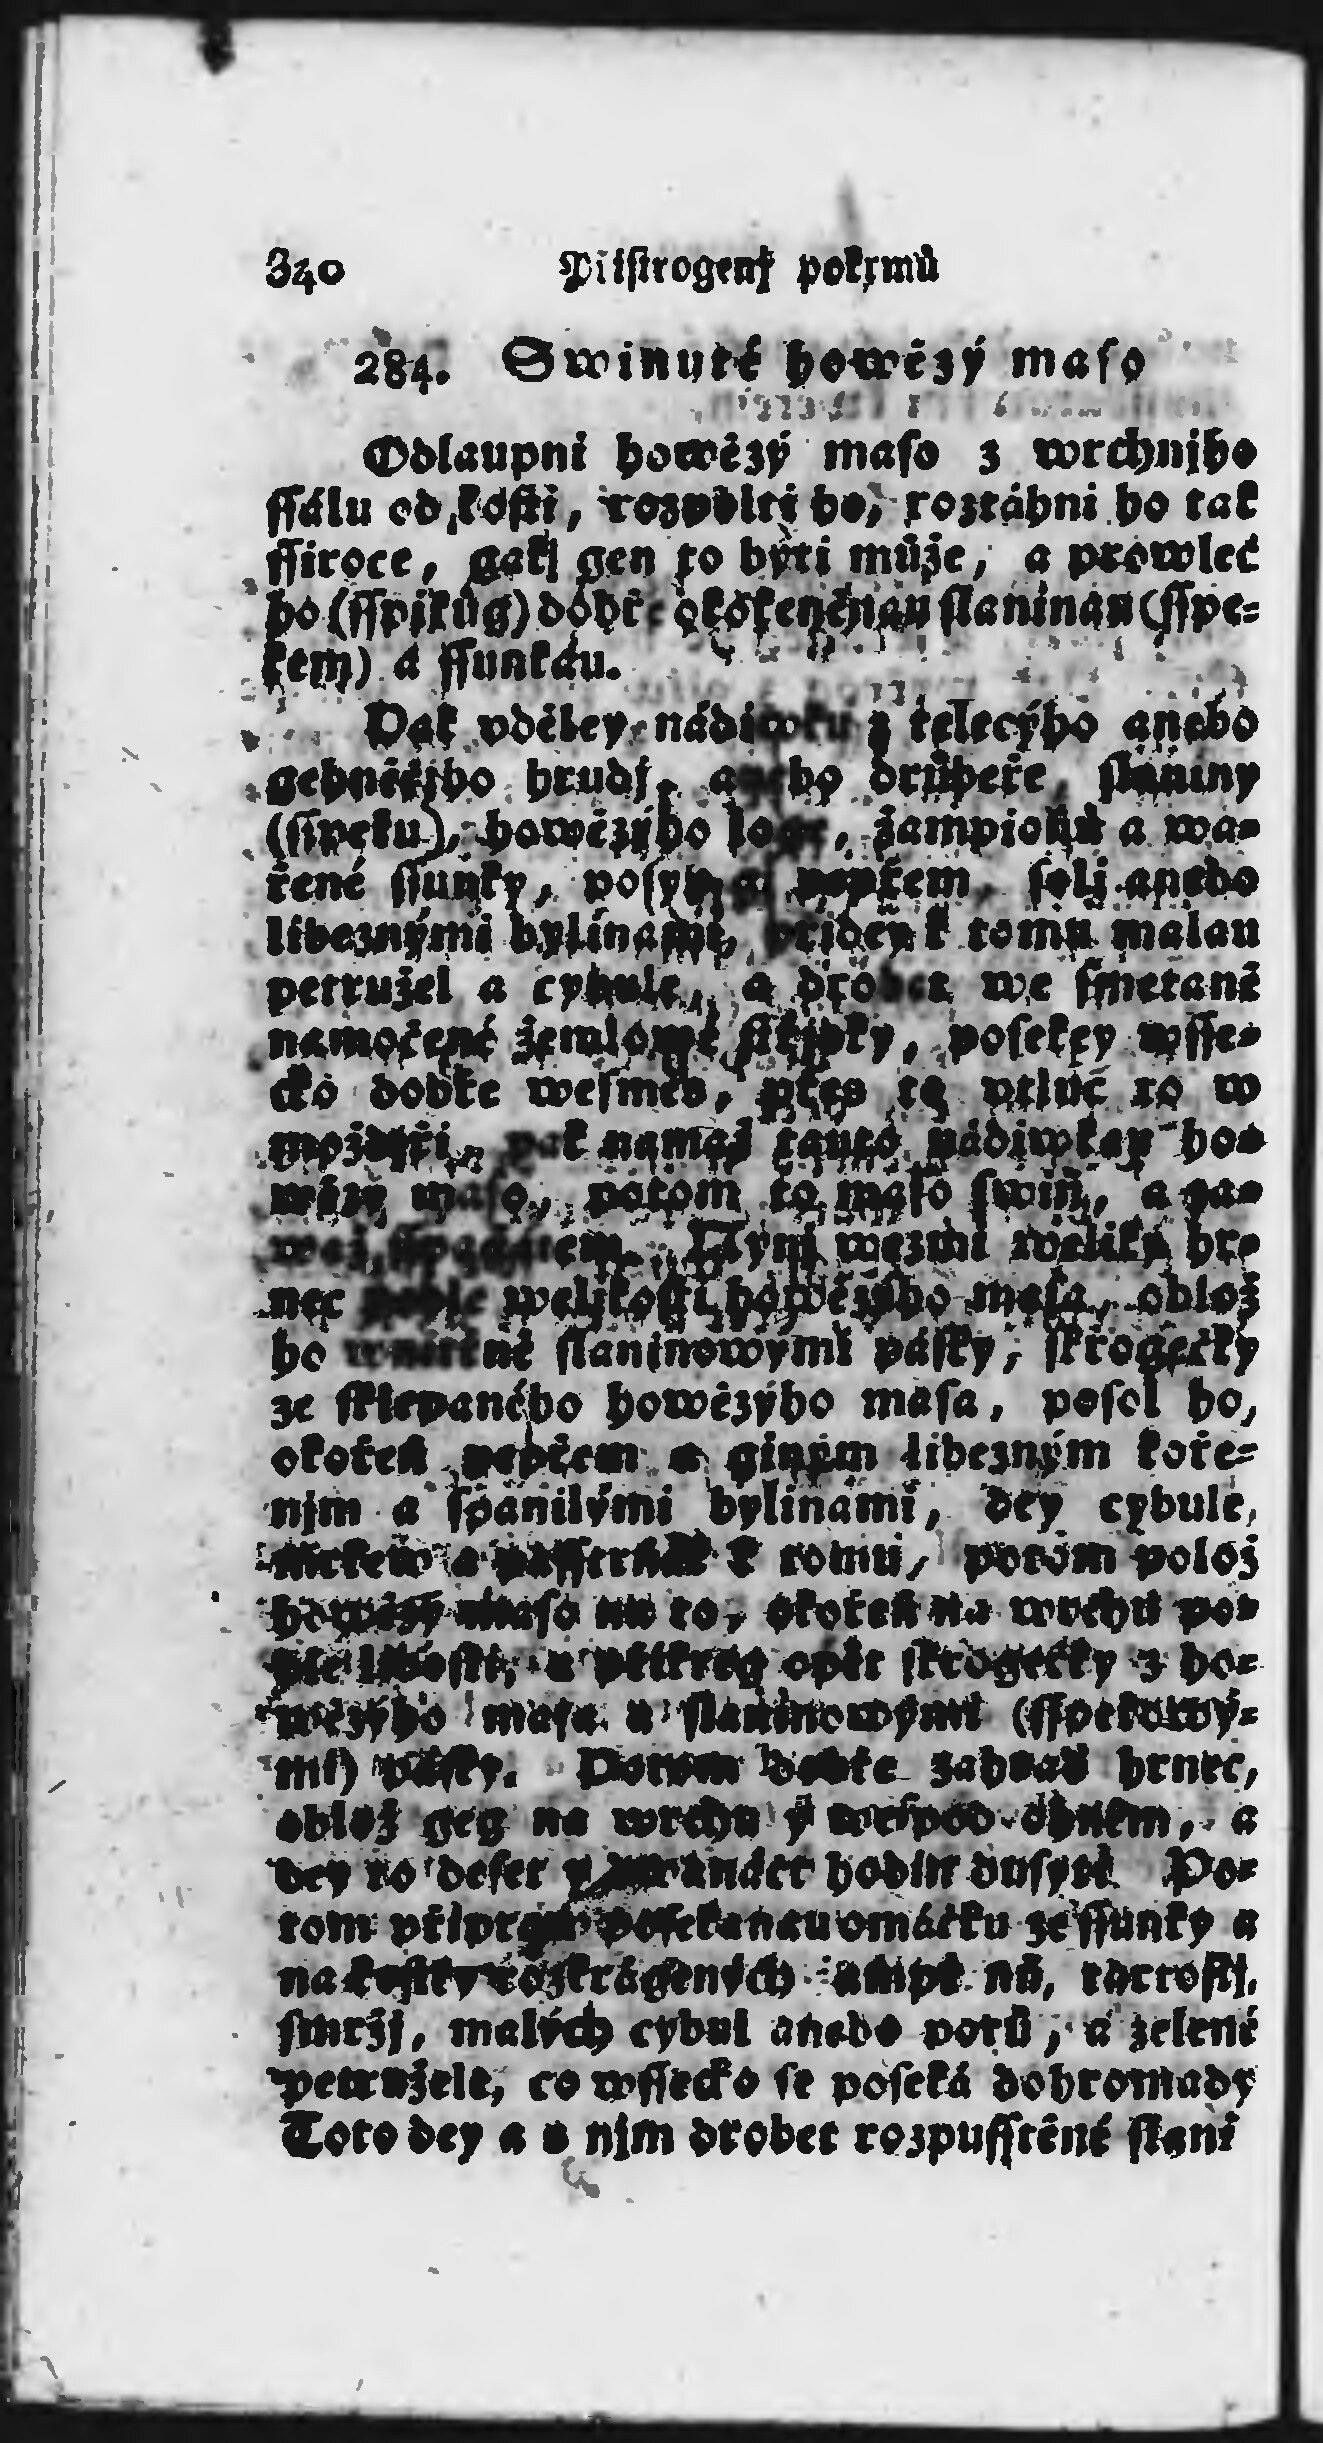 340 Přistrogenj pokrmů
284. Swinuté howězý maso
Odlaupni howězý maso z wrchnjho
ssálu od kosti, rozpolti ho, roztáhni ho tak
ssiroce, gak gen to býti může, a prowleč
ho (sspikůg) dobře okořeněnau slaninau (sspe=
kem) a ssunkau.
Pak vděley nádiwku z telecýho anebo
gehněčjho hrudj, anebo drůbeře, slaniny
(sspeku), howězýho loge, žampionů a wa=
řené ssunky, posyp gi pepřem, solj anebo
libeznými bylinami, prideyk tomu malau
petružel a cybule, a drobet we smetaně
namočené žemlowé střjdky, posekey wsse=
cko dobře wesměs, přes to vtluč to w
moždyři, pak namaž tauto nádiwkau ho=
wězý maso, potom to maso swiň, a za=
waž sspagátem. Nynj wezmi weliký hr=
nec podle welikosti howězýho masa, oblož
ho wnitřně slaninowými pásky, skrogečky
ze sklepaného howězýho masa, posol ho,
okořeň pepřem a giným libezným koře=
njm a spanilými bylinami, dey cybule,
mrkew a passternák k tomu, potom polož
howězý maso na to, okořeň na wrchu po=
dle libosti, a přikreg opět skrogečky z ho=
wězýho masa a slaninowými (sspekowý=
mi) pásky. Potom dobře zahraď hrnec,
oblož geg na wrchu y wespod ohněm, a
dey to deset y dwanáct hodin dusyti. Po=
tom připraw posekanau omáčku ze ssunky a
na kostky rozkrágených nň, tartofli,
smržj, malých cybul anebo porů, a zelené
petružele, co wssecko se poseká dohromady
Toto dey a s njm drobet rozpusstěné slani